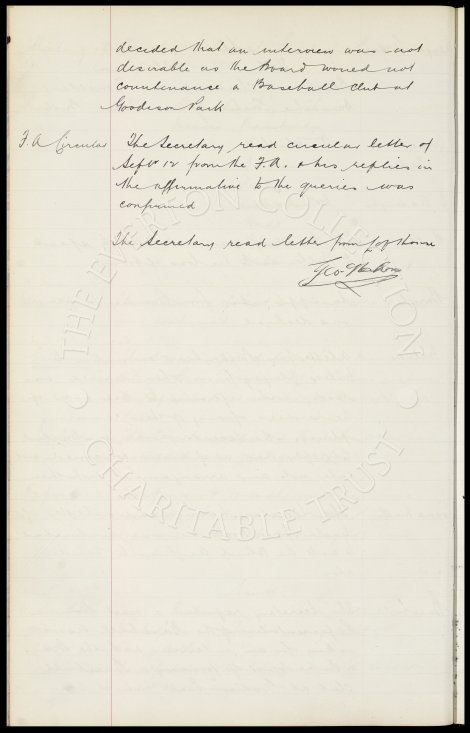 decided that an interview was not
desirable as the Board would not
countenance a Baseball club at
Goodison Park
F. A Circular The Secretary read circular letter of
Septr 12 from the F.A. & his replies in
the affirmative to the queries was
confirmed
The Secretary read letter from
Geo
THE EVERTON COLLECTION
CHARITABLE TRUST